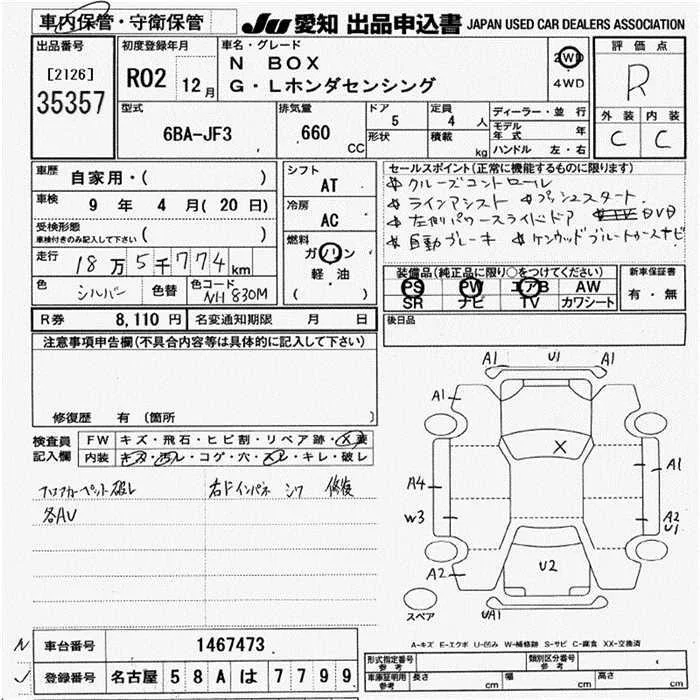 車内保管・守衛保管
JU 愛知 出品申込書 JAPAN USED CAR DEALERS ASSOCIATION
出品番号
[2126]
35357
初度登録年月
R02 12月
車名・グレード
N BOX
G・Lホンダセンシング
2WD
4WD
評価点
R
外装 内装
C C
型式
6BA-JF3
排気量
660 CC
ドア
5
形状
定員
4 人
積載
kg
ディーラー・並行
モデル年式 年
ハンドル 左・右
車歴
自家用・( )
車検
9 年 4 月(20 日)
受検形態
車検付きのみ記入して下さい ( )
走行
18万5千774km
色
シルバー
色替
色コード
NH830M
シフト
AT
冷房
AC
燃料
ガソリン
軽・油
( )
セールスポイント(正常に機能するものに限ります)
クルーズコントロール
ラインアシスト プッシュスタート
左側パワースライドドア DVD
自動ブレーキ
装備品(純正品に限り○をつけてください)
PS PW エアB AW
SR ナビ TV カワシート
新車保証書
有・無
R券 8,110 円 名変通知期限 月 日
後日品
注意事項申告欄(不具合内容等は具体的に記入して下さい)
修復歴 有 (箇所 )
検査員記入欄
FW キズ・飛石・ヒビ割・リペア跡・X要
内装 キズ・汚レ・コゲ・穴・スレ・キレ・破レ
フロアカーペット破レ 右Fインパネ シワ 修復
各AU
A1 U1 A1
A1
X
A1
A4
W3
A2
U1
A2
U2
UA1
スペア
A-キズ E-エクボ U-凹み W-補修跡 S-サビ C-腐食 XX-交換済
N 車台番号 1467473
J 登録番号 名古屋 5 8 A は 7 7 9 9
形式指定番号
参考
類別区分番号
参考
車庫証明用
参考
長さ cm 幅 cm 高さ cm